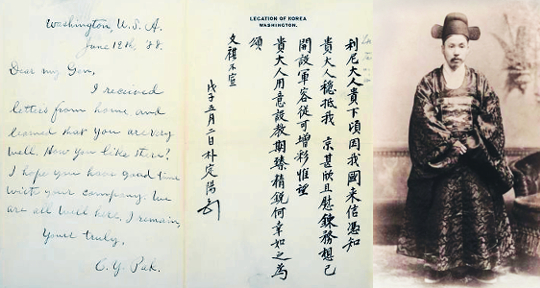 Washington, U.S.A.
June 12th, 88.
Dear my Gen,
I received
letters from home and
learned that you are very
well. How you like
I hope you have good time
with your company. We
are all well here. I remain,
Yours truly,
C. Y. Pak.
LEGATION OF KOREA
WASHINGTON
利尼大人貴下頃因我國来信憑知
貴大人穩抵我 京甚欣且慰鍊務想已
開設軍容從可增彩惟望
貴大人用意設教期臻精銳何幸如之為
頌
文禮不宣
戊子五月二日朴定陽